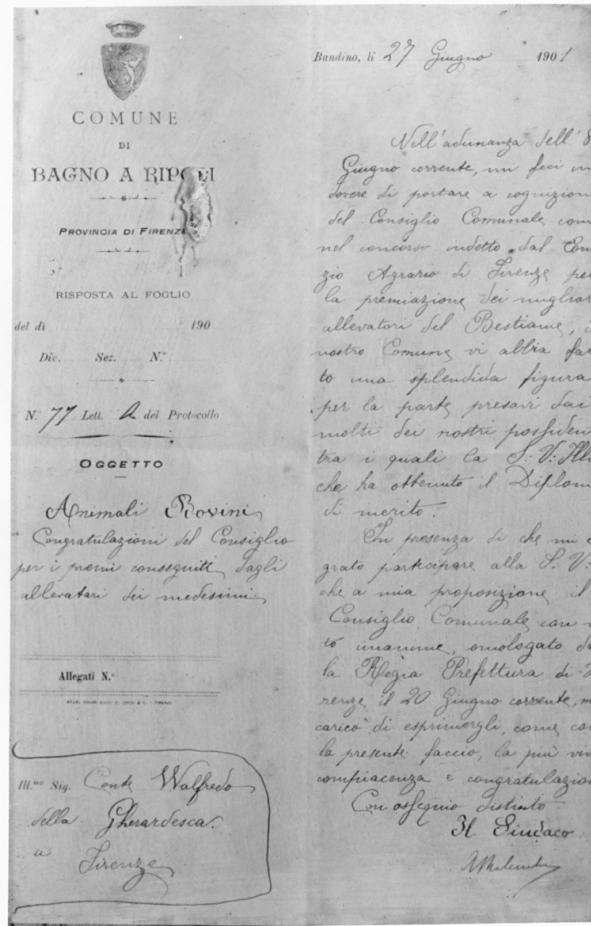 COMUNE
DI
BAGNO A RIPOLI
PROVINCIA DI FIRENZE
RISPOSTA AL FOGLIO
del di 190
Div. Sez. N.°
N.° 77 Lett. A del Protocollo
OGGETTO
Animali Bovini
Congratulazioni del Consiglio
per i premi conseguiti dagli
allevatori dei medesimi
Allegati N.°
Ill.mo Sig. Conte Walfredo
della Gherardesca
a Firenze
Bandino, li 27 Giugno 1901
Nell'adunanza dell'8
Giugno corrente, mi feci un
dovere di portare a cognizion
del Consiglio Comunale com
nel concorso indetto dal Com
zio Agrario di Firenze per
la premiazione dei miglior
allevatori del Bestiame, i
nostro Comune vi abbia fat
to una splendida figura
per la parte presavi dai
molti dei nostri possiden
tra i quali la S: V: Ill
che ha ottenuto il Diplom
di merito.
In presenza di che mi è
grato partecipare alla S. V:
che a mia proposizione il
Consiglio Comunale con v
to unanime, omologato da
la Regia Prefettura di Fi
renze il 20 Giugno corrente, m
caricò di esprimergli, come co
la presente faccio, la più viv
compiacenza e congratulazion
Con ossequio distinto
Il Sindaco